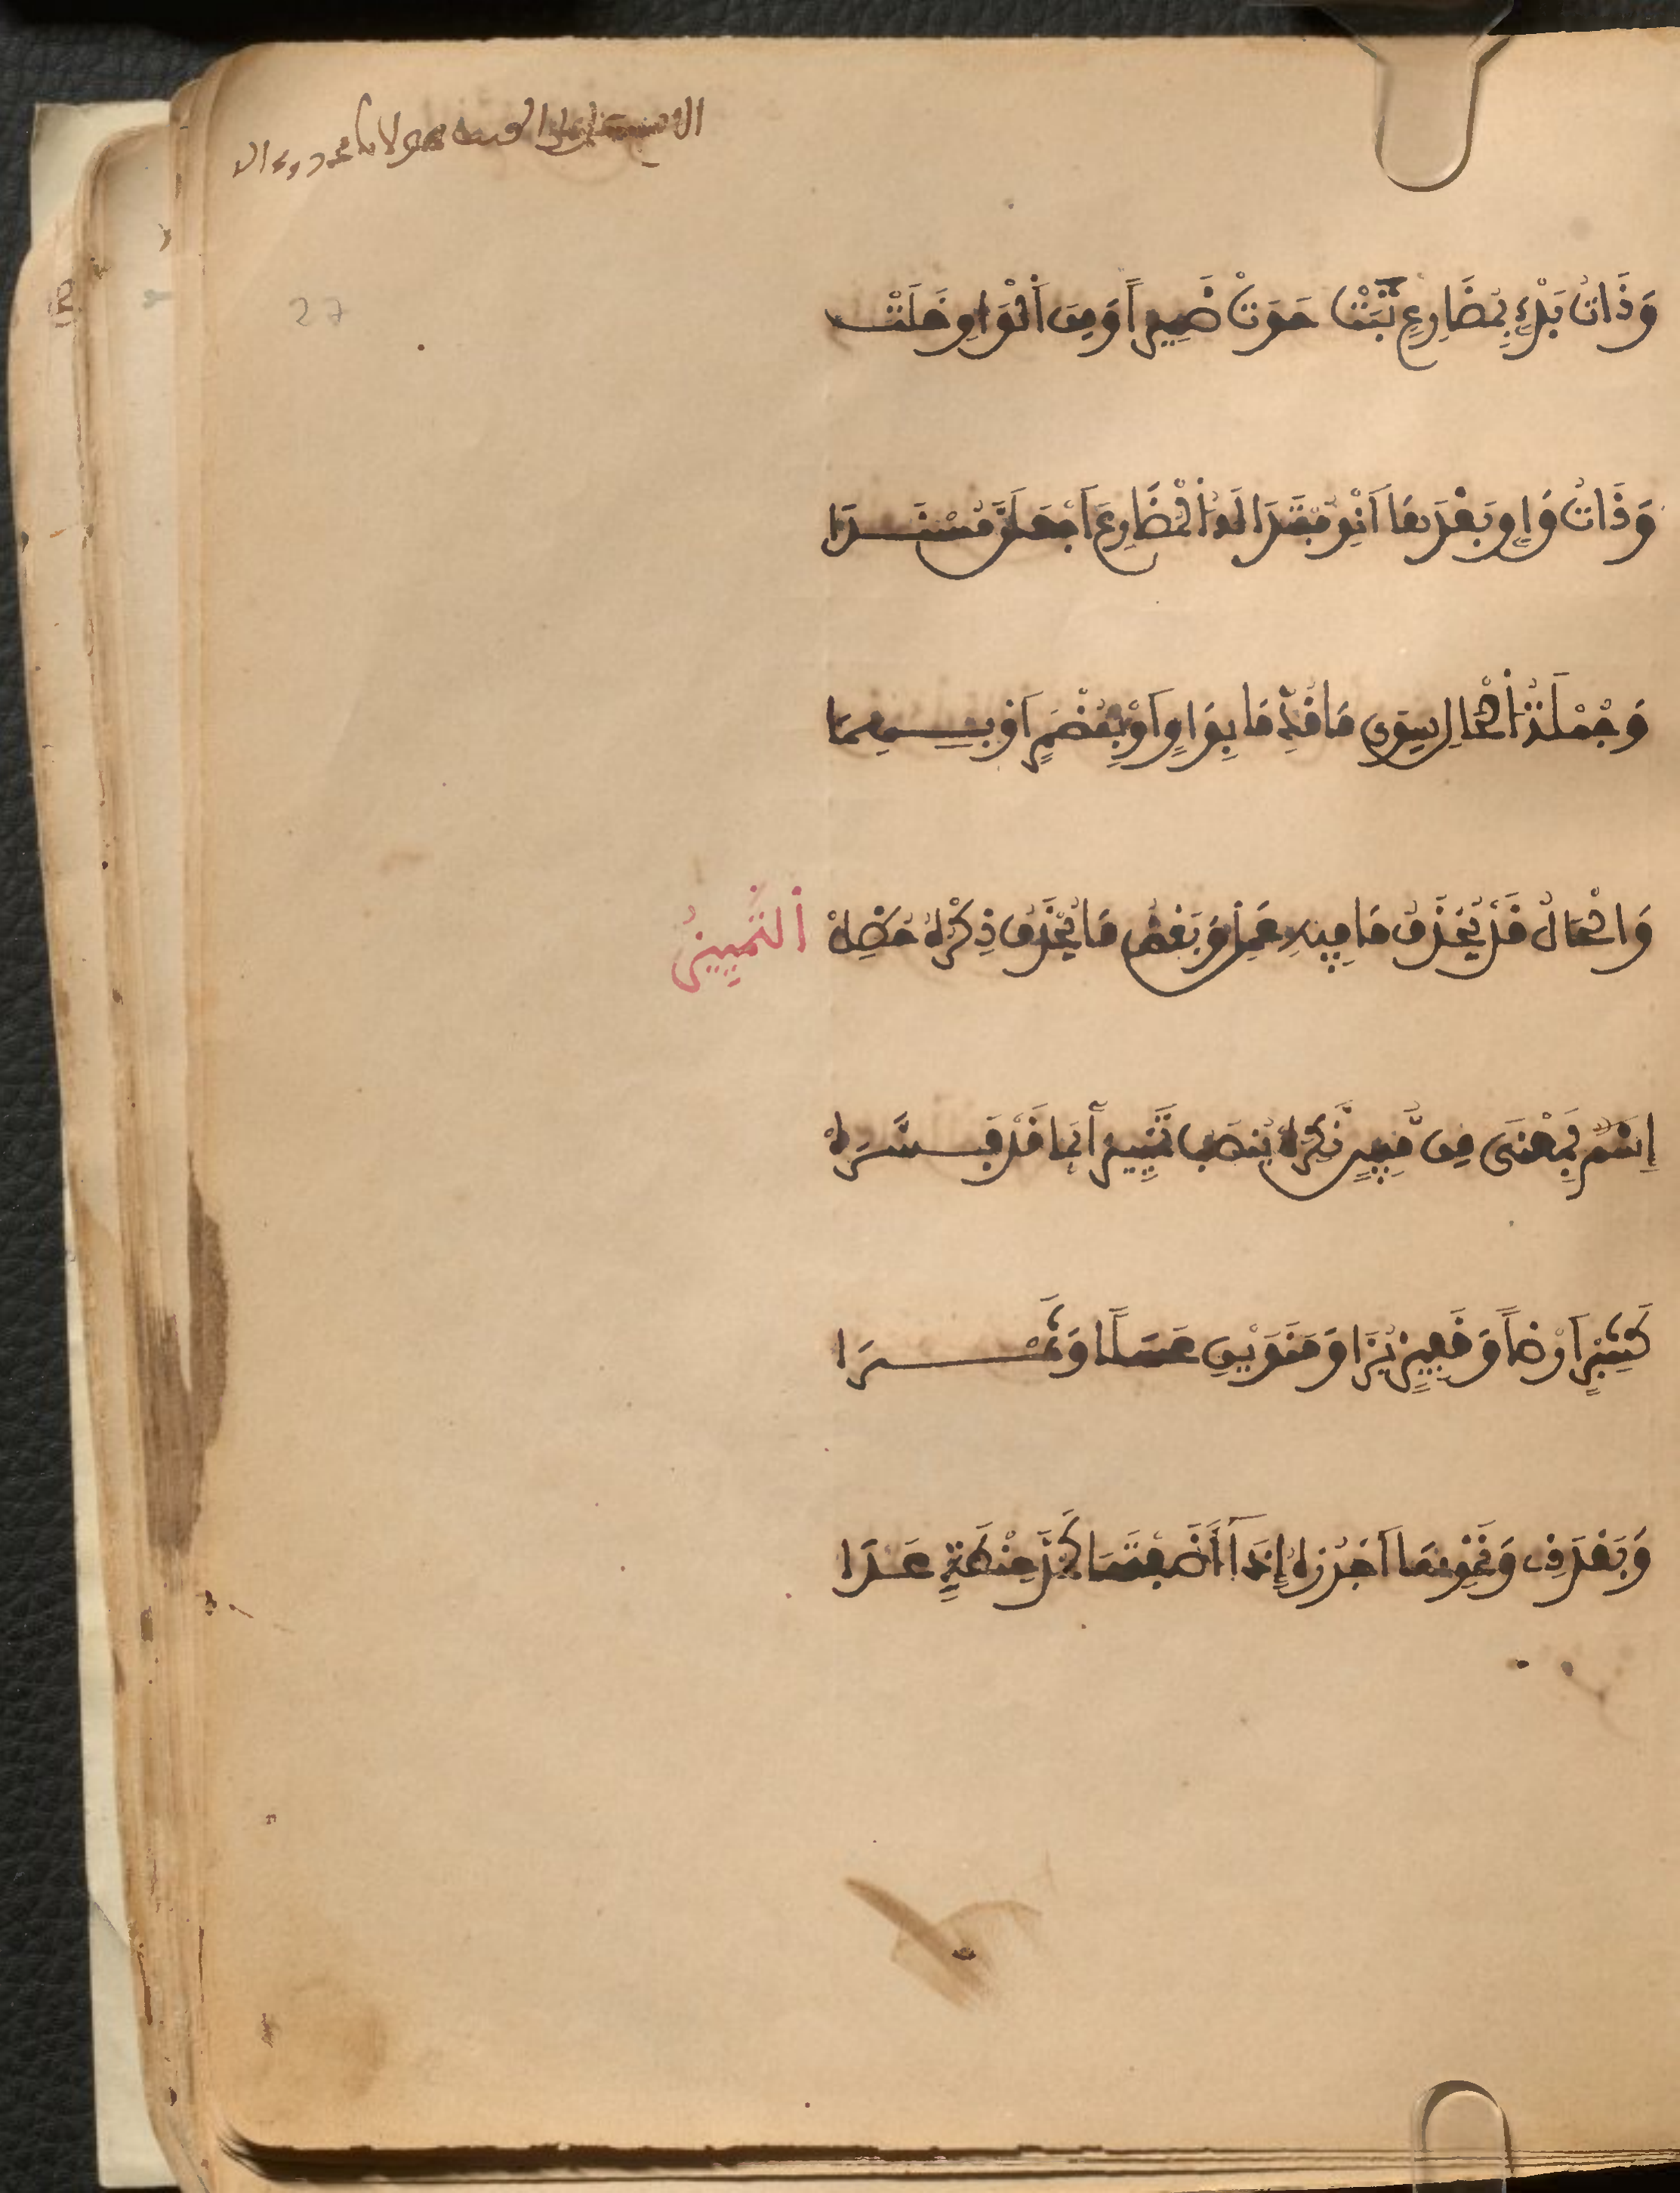 27
وَذَاتُ بَدْءٍ بِمُضَارِعٍ ثَبَتْ حَوَتْ ضَمِيراً وَمِنَ اَلْوَاوِ خَلَتْ
وَذَاتُ وَاوٍ بَعْدَهَا اَنْوِ مُبْتَدَا لَهُ اُلْمُضَارِعَ اَجْعَلَنَّ مُسْنَدَا
وَجُمْلَةُ اُلْحَالِ سِوَى مَا قُدِّمَا بِوَاوٍ اَوْ بِمُضْمَرٍ اَوْ بِهِمَا
وَالْحَالُ قَدْ يُحْذَفُ مَا فِيهَا عَمِلْ وَبَعْضُ مَا يُحْذَفُ ذِكْرُهُ حُظِلْ اُلتَّمْيِيزُ
اِسْمٌ بِمَعْنَى مِن مُّبِينٍ نَّكِرَهْ يُنصَبُ تَمْيِيزاً بِمَا قَدْ فَسَّرَهْ
كَشِبْرٍ اَرْضاً وَقَفِيزٍ بُرَّا وَمَنَوَيْنِ عَسَلًا وَتَمْرَا
وَبَعْدَ ذِي وَنَحْوِهَا اَجْرُرْهُ إِذَا أَضَفْتَهَا كَمُدُّ حِنْطَةٍ غَدَا